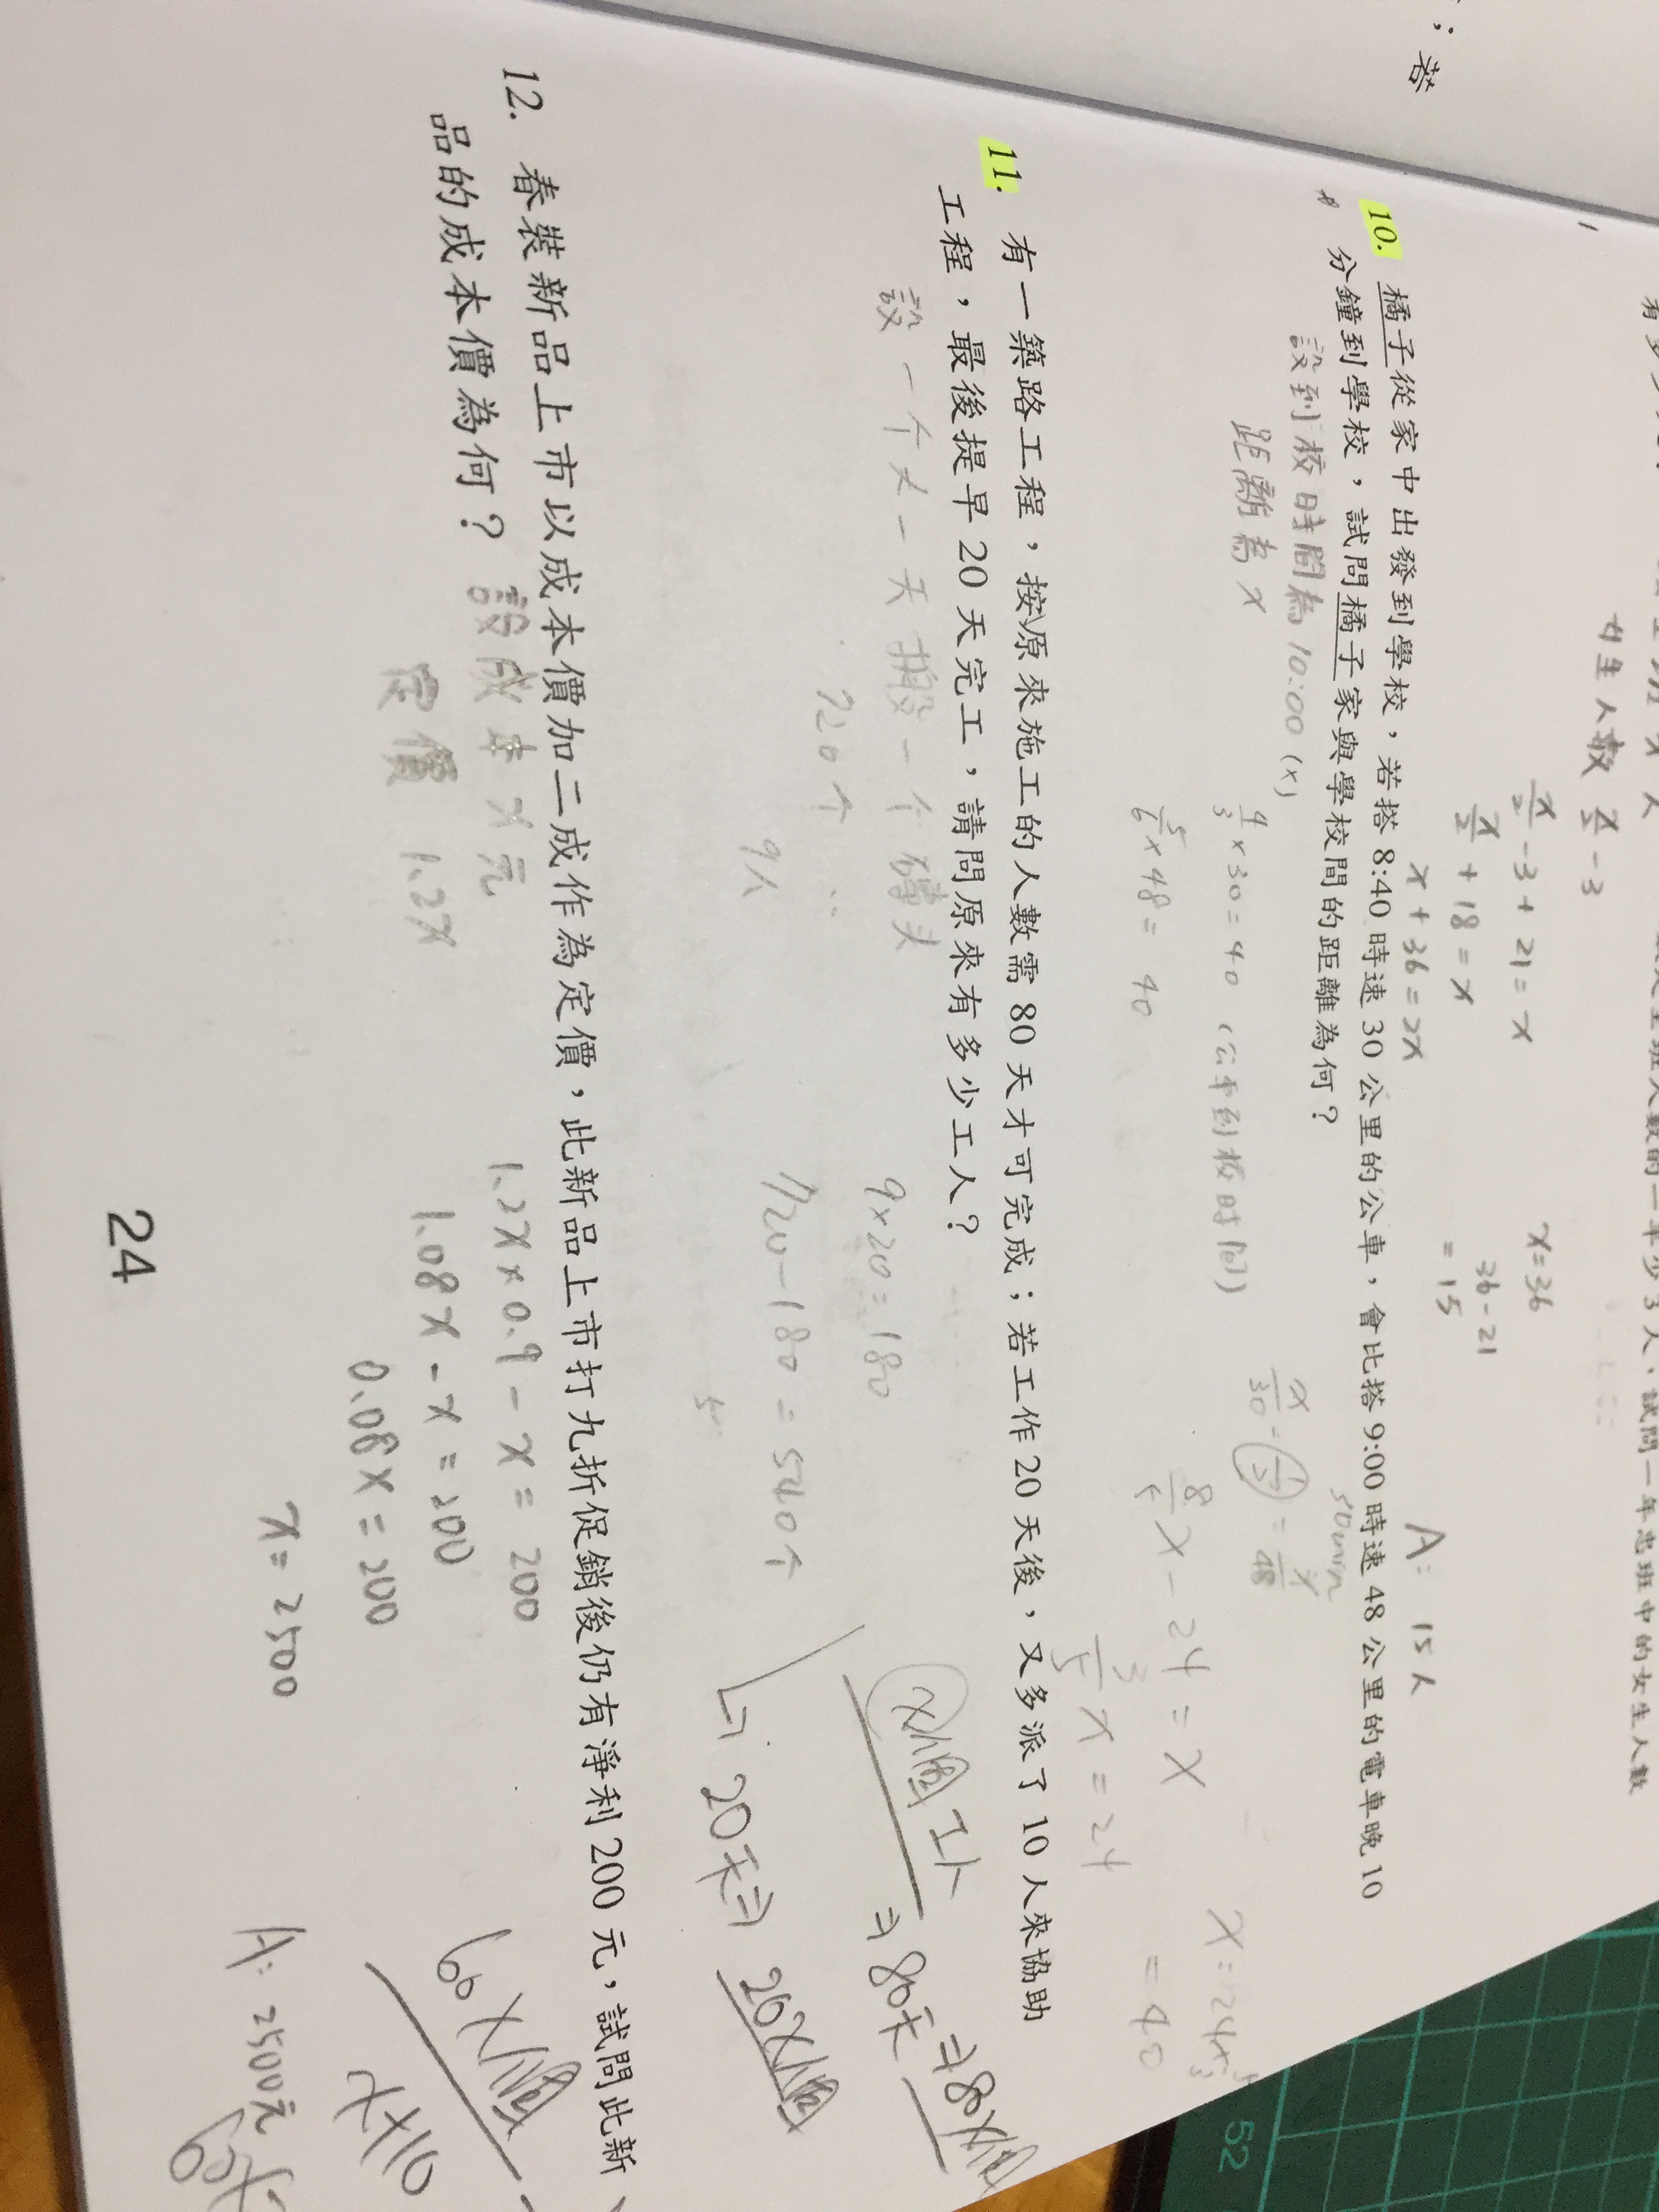 ；若
女生人數 x/2 - 3
x/2 - 3 + 21 = x
x/2 + 18 = x
x + 36 = 2x
x = 36
36 - 21
= 15
A: 15人
10. 橘子從家中出發到學校，若搭 8:40 時速 30 公里的公車，會比搭 9:00 時速 48 公里的電車晚 10
分鐘到學校，試問橘子家與學校間的距離為何？
設到校時間為 10:00 (x)
距離為 x
4/3 x 30 = 40 (公車到校時間)
5/6 x 48 = 40
30min
x/30 - 1/2 = x/48
8/5 x - 24 = x
3/5 x = 24
= 40
11. 有一築路工程，按原來施工的人數需 80 天才可完成；若工作 20 天後，又多派了 10 人來協助
工程，最後提早 20 天完工，請問原來有多少工人？
設一个人一天搬一个磚头
720个
9人
9 x 20 = 180
720 - 180 = 540个
x個工人
⇒ 80天 ⇒ 80x個
↳ 20天 ⇒ 20x個
60x個
x+10
12. 春裝新品上市以成本價加二成作為定價，此新品上市打九折促銷後仍有淨利 200 元，試問此新
品的成本價為何？
設成本 x 元
定價 1.2x
1.2x x 0.9 - x = 200
1.08x - x = 200
0.08x = 200
x = 2500
A: 2500元
24
52